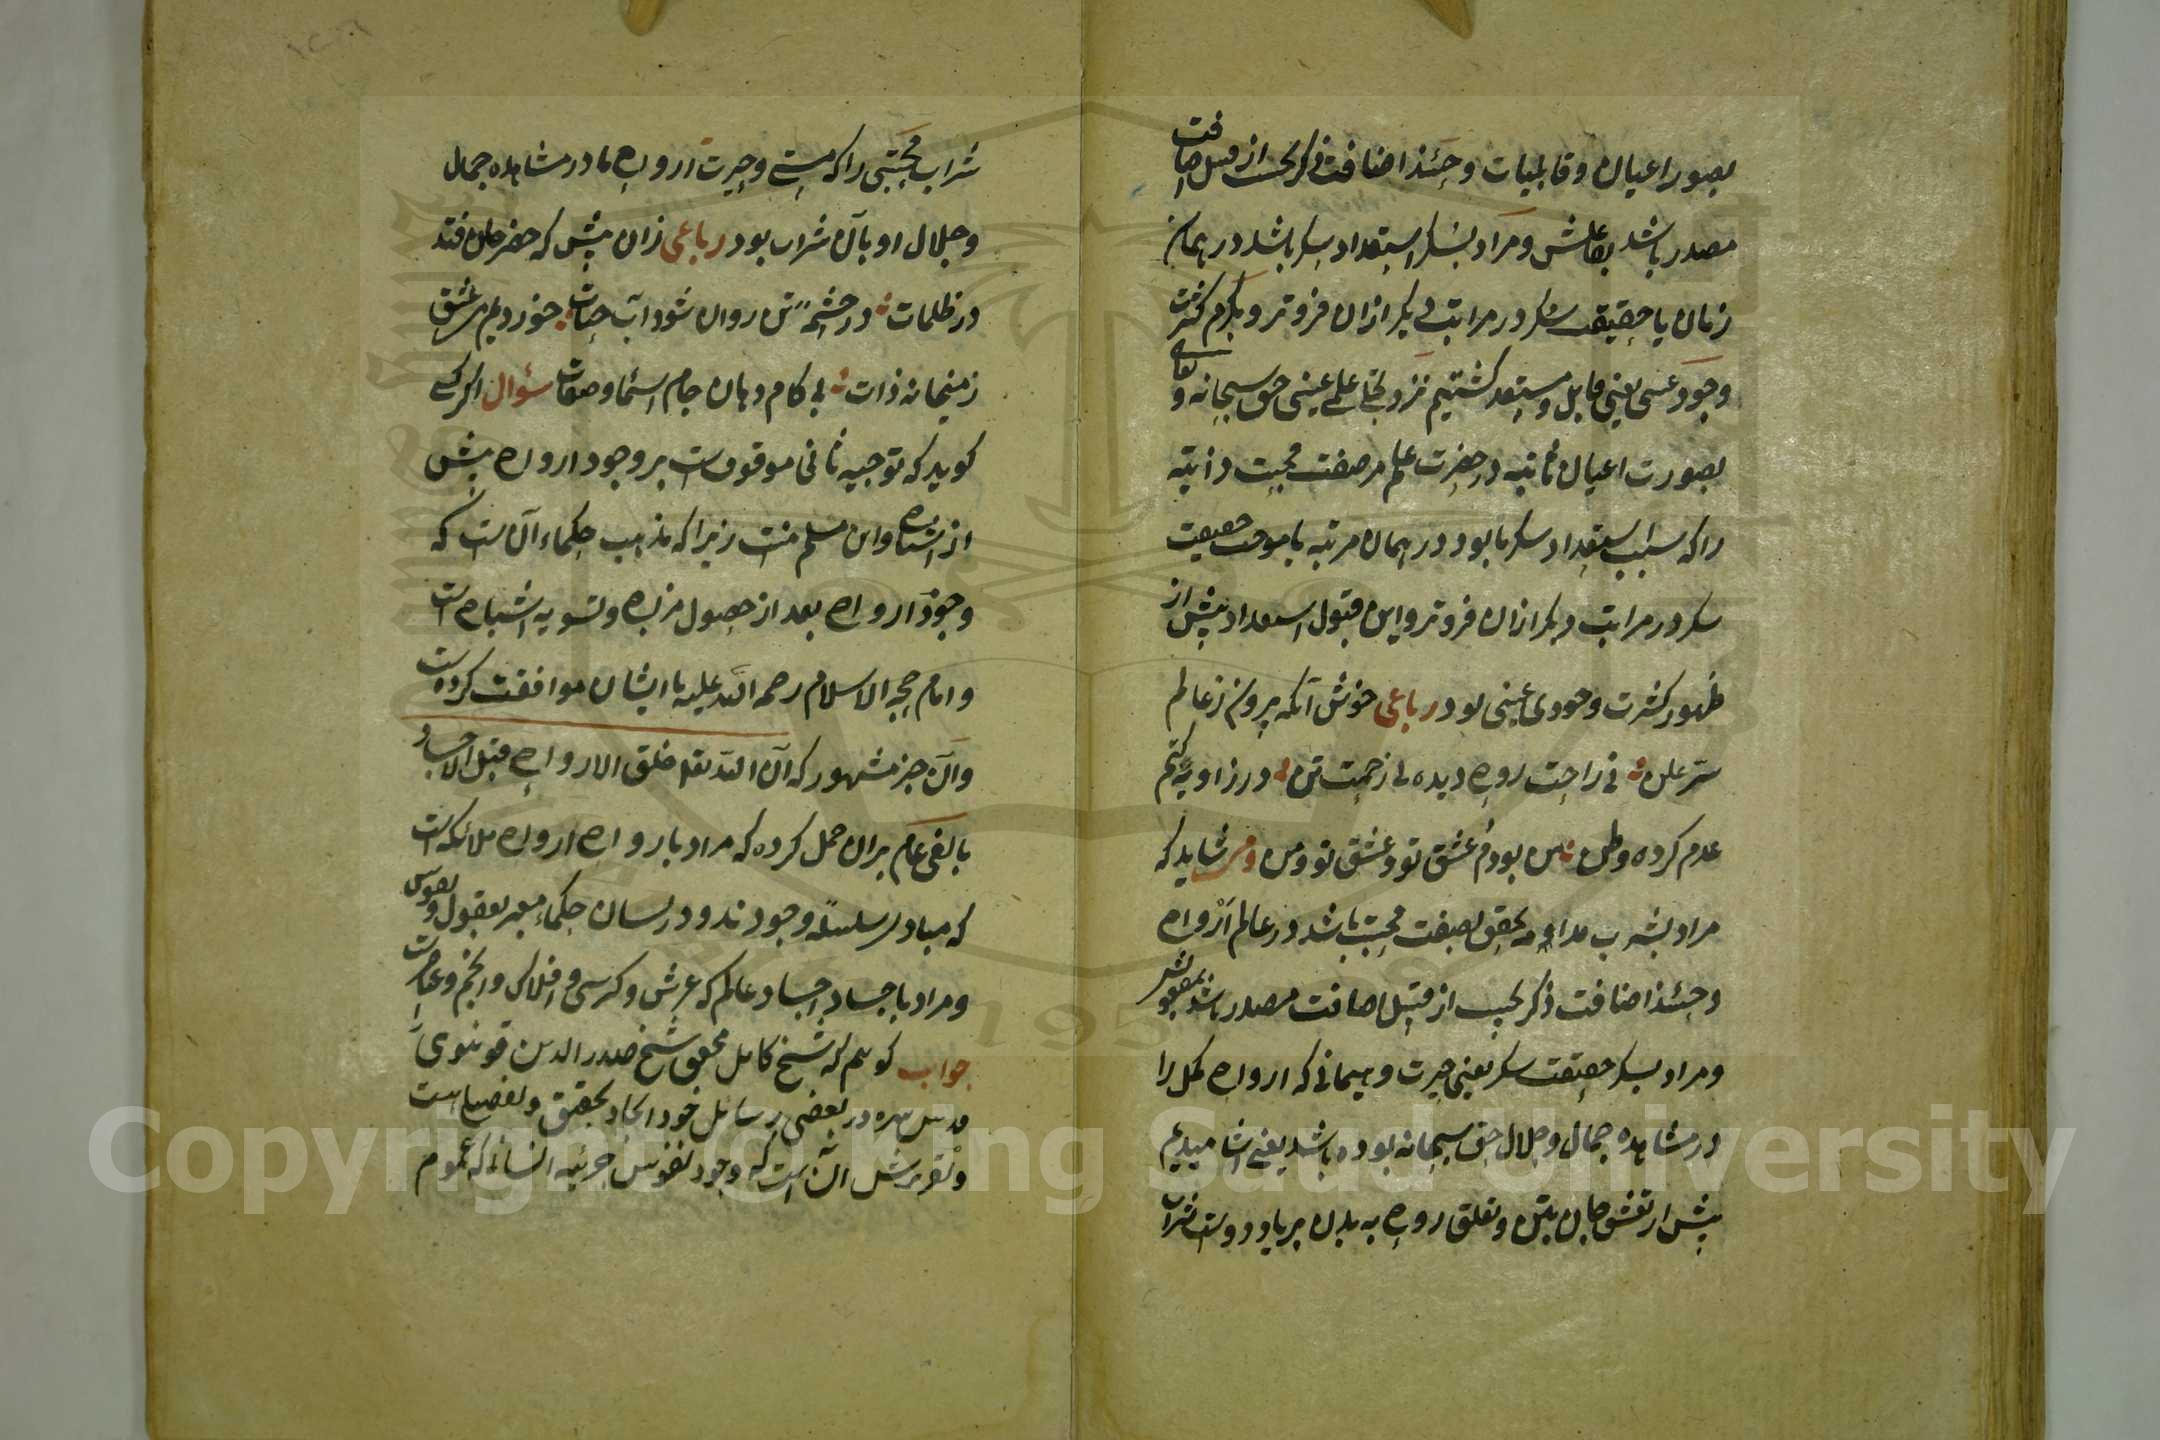 بصور اعیان و قابلیات و حینئذ اضافت ذکر بحبیب از قبیل اضافت
مصدر باشد بفاعلش و مراد بسکر استعداد سکر باشد در همان
زمان یا حقیقت سکر در مراتب دیگر ازان فروتر
وجود عینی یعنی قابل و مستعد گشتیم نزد تجلی علمی غیبی حق سبحانه و تعالی
بصورت اعیان ثابته در حضرت علم مر صفت محبت ذاتیه
را که سبب استعداد سکر ما بود در همان مرتبه یا موجب حقیقت
سکر در مراتب دیگر ازان فروتر و این قبول استعداد پیش از
ظهور کثرت وجودی عینی بود رباعی خوش آنکه برون ز عالم
سر و علن نی راحت روح دیده نی زحمت تن در زاویه کتم
عدم کرده وطن من بودم و عشق تو و عشق تو و من و می شاید که
مراد بشرب مدامه تحقق بصفت محبت باشد در عالم ارواح
و حینئذ اضافت ذکر بحبیب از قبیل اضافت مصدر باشد بمفعولش
و مراد بسکر حقیقت سکر یعنی حیرت و هیمانی که ارواح کمل را
در مشاهده جمال و جلال حق سبحانه بوده باشد یعنی آشامیدیم
پیش از تعشق جان بتن و تعلق روح به بدن بر یاد دوست شراب
شراب محبتی را که مستی و حیرت ارواح ما در مشاهده جمال
و جلال او بآن شراب بود رباعی زان پیش که خضر جان فتد
در ظلمات در چشمه تن روان شود آب حیات خوردیم می عشق
ز میخانه ذات بی کام و دهان ز جام اسما و صفات سؤال اگر کسی
گوید که توجیه ثانی موقوفست بر وجود ارواح پیش
از اشباح و این مسلم نیست زیرا که مذهب حکماء آن است که
وجود ارواح بعد از حصول مزاج و تسویه اشباح است
و امام حجة الاسلام رحمه الله علیه با ایشان موافقت کرده است
و آن خبر مشهور که ان الله تعالی خلق الارواح قبل الاجساد
بالفی عام بران حمل کرده که مراد بارواح ارواح ملائکه است
که مبادی سلسله وجودند و در لسان حکماء معبر بعقول و نفوس
و مراد باجساد اجساد عالم که عرش و کرسی و افلاک و انجم و عناصر است
جواب گوییم که شیخ کامل محقق شیخ صدر الدین قونیوی را
قدس سره در بعضی رسائل خود اینجا تحقیق و تفصیل است
و تقریرش آن است که وجود نفوس جزئیه انسانی که عموم